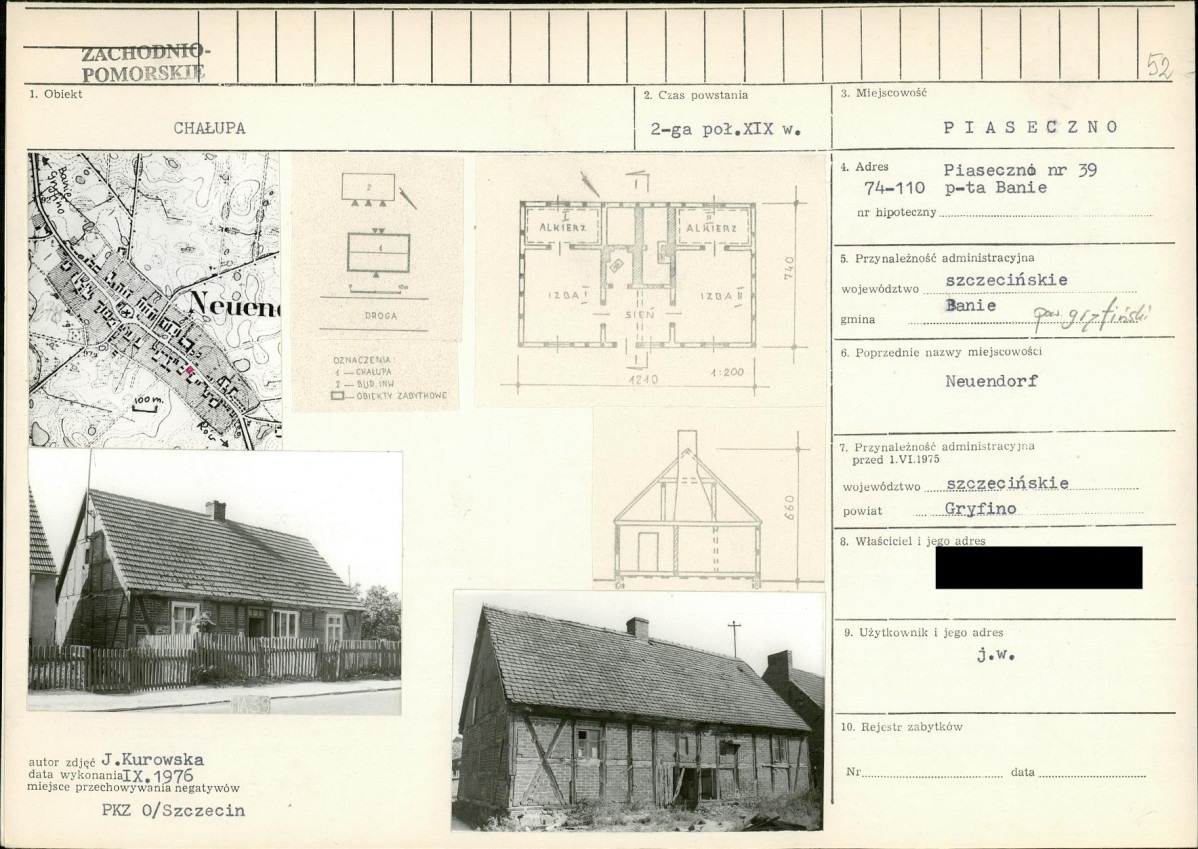 ZACHODNIO-
POMORSKIE
52
1. Obiekt
CHAŁUPA
2. Czas powstania
2-ga poł.XIX w.
3. Miejscowość
PIASECZNO
4. Adres
Piaseczno nr 39
74-110 p-ta Banie
nr hipoteczny
5. Przynależność administracyjna
województwo szczecińskie
gmina Banie
6. Poprzednie nazwy miejscowości
Neuendorf
7. Przynależność administracyjna
przed 1.VI.1975
województwo szczecińskie
powiat Gryfino
8. Właściciel i jego adres
9. Użytkownik i jego adres
j.w.
10. Rejestr zabytków
Nr data
Banie
Gryfino
Neuen
100 m.
2
1
DROGA
OZNACZENIA:
1 — CHAŁUPA
2 — BUD. INW
— OBIEKTY ZABYTKOWE
I
ALKIERZ
II
ALKIERZ
IZBA I
SIEŃ
IZBA II
740
1210
1:200
660
autor zdjęć J.Kurowska
data wykonania IX.1976
miejsce przechowywania negatywów
PKZ O/Szczecin